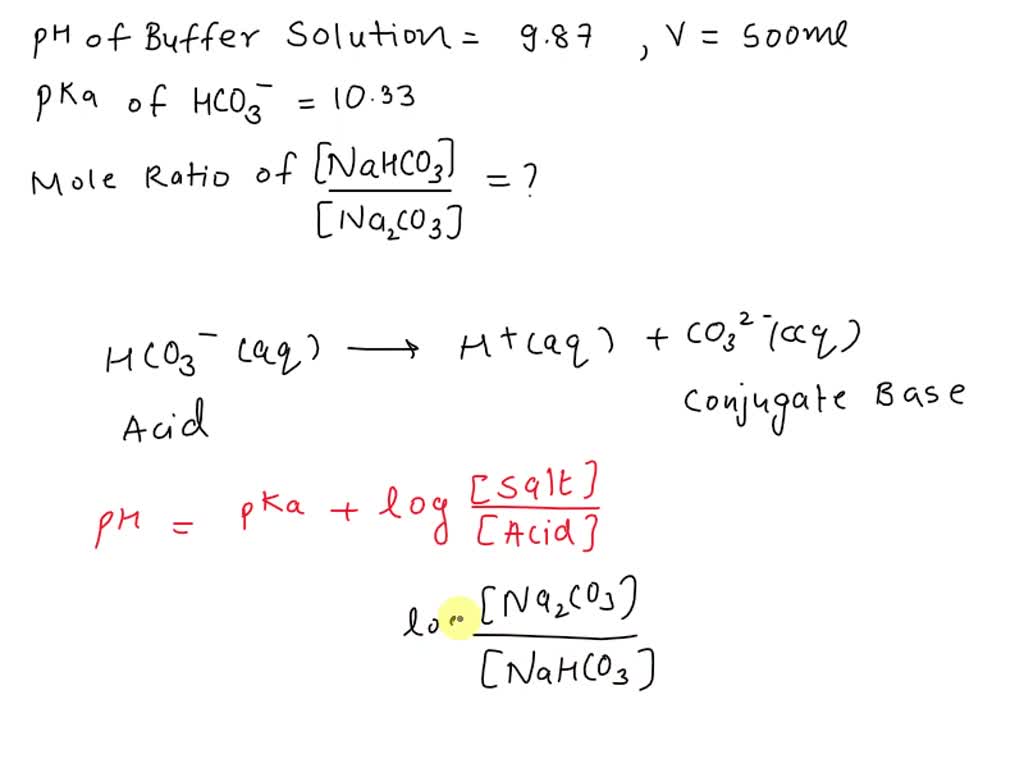 pH of Buffer Solution = 9.87 , V = 500ml
pKa of HCO₃⁻ = 10.33
Mole Ratio of [NaHCO₃] / [Na₂CO₃] = ?
HCO₃⁻ (aq) ⟶ H⁺ (aq) + CO₃²⁻ (aq)
Acid Conjugate Base
pH = pKa + log [Salt] / [Acid]
lo [Na₂CO₃] / [NaHCO₃]